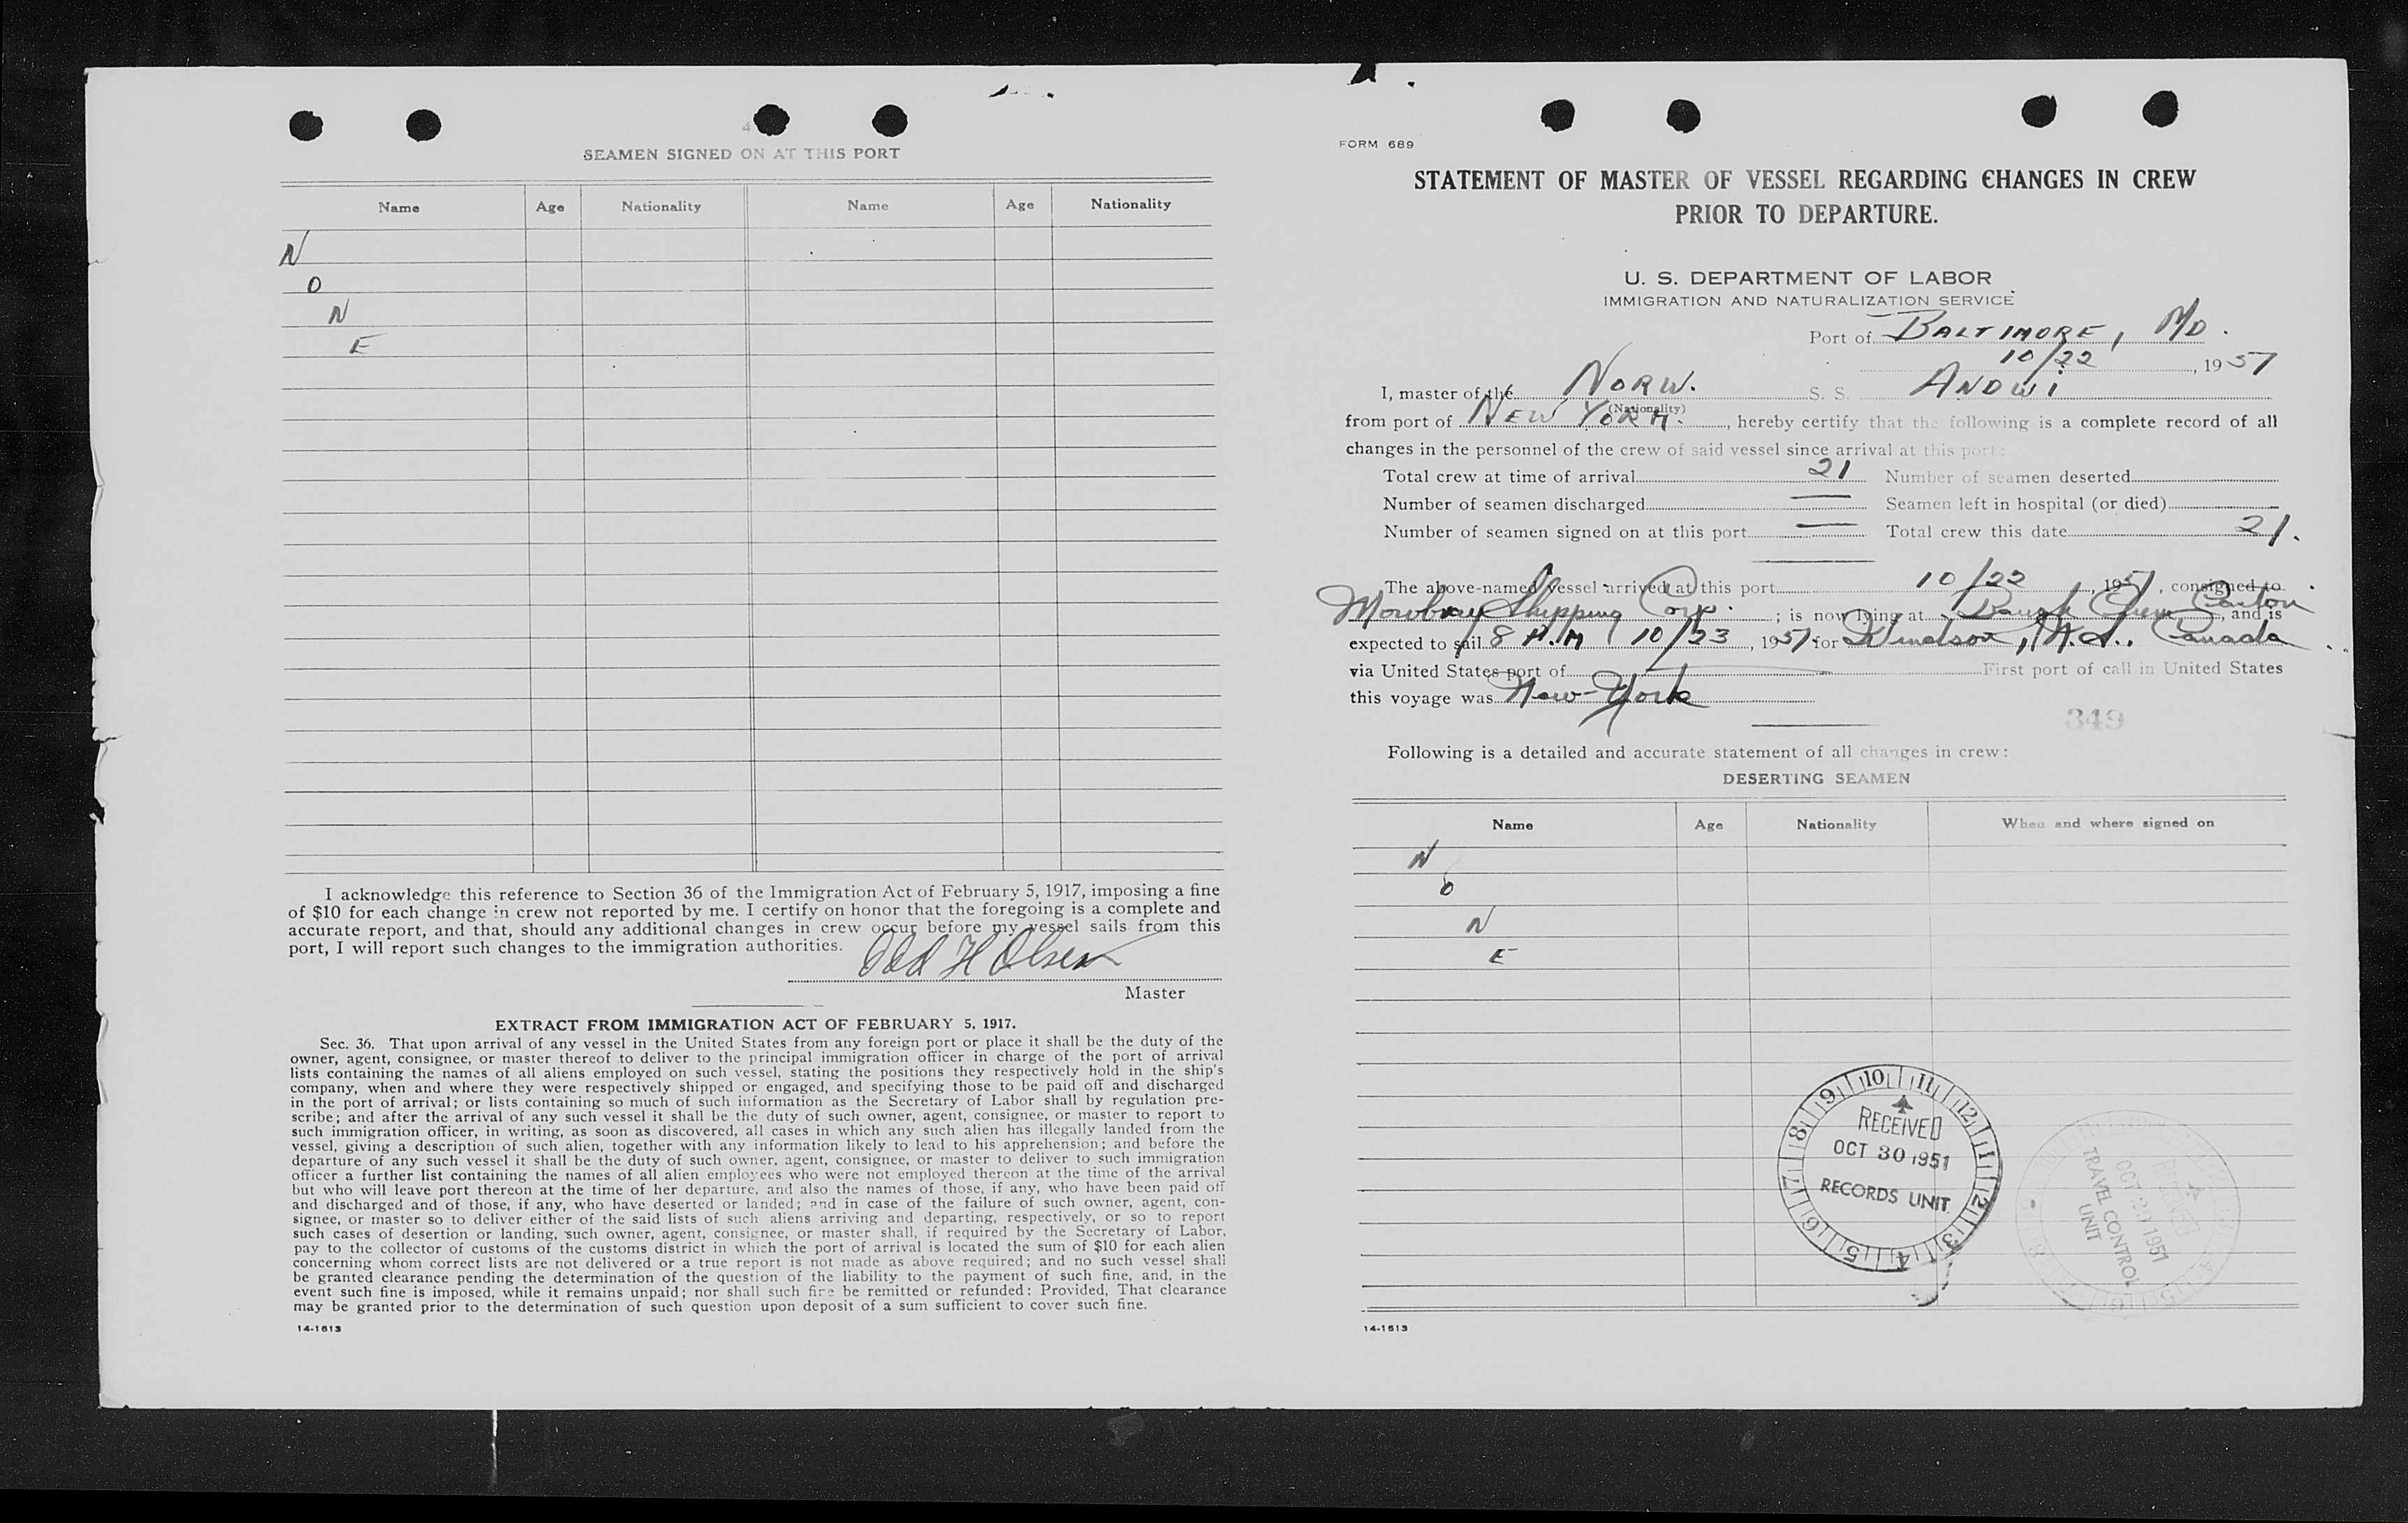 4
SEAMEN SIGNED ON AT THIS PORT
Name Age Nationality Name Age Nationality
N
O
N
E
I acknowledge this reference to Section 36 of the Immigration Act of February 5, 1917, imposing a fine
of $10 for each change in crew not reported by me. I certify on honor that the foregoing is a complete and
accurate report, and that, should any additional changes in crew occur before my vessel sails from this
port, I will report such changes to the immigration authorities.
H Olsen
Master
EXTRACT FROM IMMIGRATION ACT OF FEBRUARY 5, 1917.
Sec. 36. That upon arrival of any vessel in the United States from any foreign port or place it shall be the duty of the
owner, agent, consignee, or master thereof to deliver to the principal immigration officer in charge of the port of arrival
lists containing the names of all aliens employed on such vessel, stating the positions they respectively hold in the ship's
company, when and where they were respectively shipped or engaged, and specifying those to be paid off and discharged
in the port of arrival; or lists containing so much of such information as the Secretary of Labor shall by regulation pre-
scribe; and after the arrival of any such vessel it shall be the duty of such owner, agent, consignee, or master to report to
such immigration officer, in writing, as soon as discovered, all cases in which any such alien has illegally landed from the
vessel, giving a description of such alien, together with any information likely to lead to his apprehension; and before the
departure of any such vessel it shall be the duty of such owner, agent, consignee, or master to deliver to such immigration
officer a further list containing the names of all alien employees who were not employed thereon at the time of the arrival
but who will leave port thereon at the time of her departure, and also the names of those, if any, who have been paid off
and discharged and of those, if any, who have deserted or landed; and in case of the failure of such owner, agent, con-
signee, or master so to deliver either of the said lists of such aliens arriving and departing, respectively, or so to report
such cases of desertion or landing, such owner, agent, consignee, or master shall, if required by the Secretary of Labor,
pay to the collector of customs of the customs district in which the port of arrival is located the sum of $10 for each alien
concerning whom correct lists are not delivered or a true report is not made as above required; and no such vessel shall
be granted clearance pending the determination of the question of the liability to the payment of such fine, and, in the
event such fine is imposed, while it remains unpaid; nor shall such fine be remitted or refunded: Provided, That clearance
may be granted prior to the determination of such question upon deposit of a sum sufficient to cover such fine.
14-1613
FORM 689
STATEMENT OF MASTER OF VESSEL REGARDING CHANGES IN CREW
PRIOR TO DEPARTURE.
U. S. DEPARTMENT OF LABOR
IMMIGRATION AND NATURALIZATION SERVICE
Port of BALTIMORE, MD.
10/22, 1951
I, master of the NORW. S. S. ANDWI
(Nationality)
from port of NEW YORK., hereby certify that the following is a complete record of all
changes in the personnel of the crew of said vessel since arrival at this port:
Total crew at time of arrival 21 Number of seamen deserted
Number of seamen discharged — Seamen left in hospital (or died)
Number of seamen signed on at this port — Total crew this date 21.
The above-named vessel arrived at this port 10/22, 1951, consigned to
Mowbray Shipping Corp.; is now lying at Baugh Chem Canton, and is
expected to sail 8 P.M 10/23, 1951 for Windsor, N.S., Canada
via United States port of — First port of call in United States
this voyage was New-York
349
Following is a detailed and accurate statement of all changes in crew:
DESERTING SEAMEN
Name Age Nationality When and where signed on
N
O
N
E
9 10 11 12 1 2 3 4 5 6 7 8
RECEIVED
OCT 30 1951
RECORDS UNIT
RECEIVED
OCT 29 1951
TRAVEL CONTROL
UNIT
14-1613